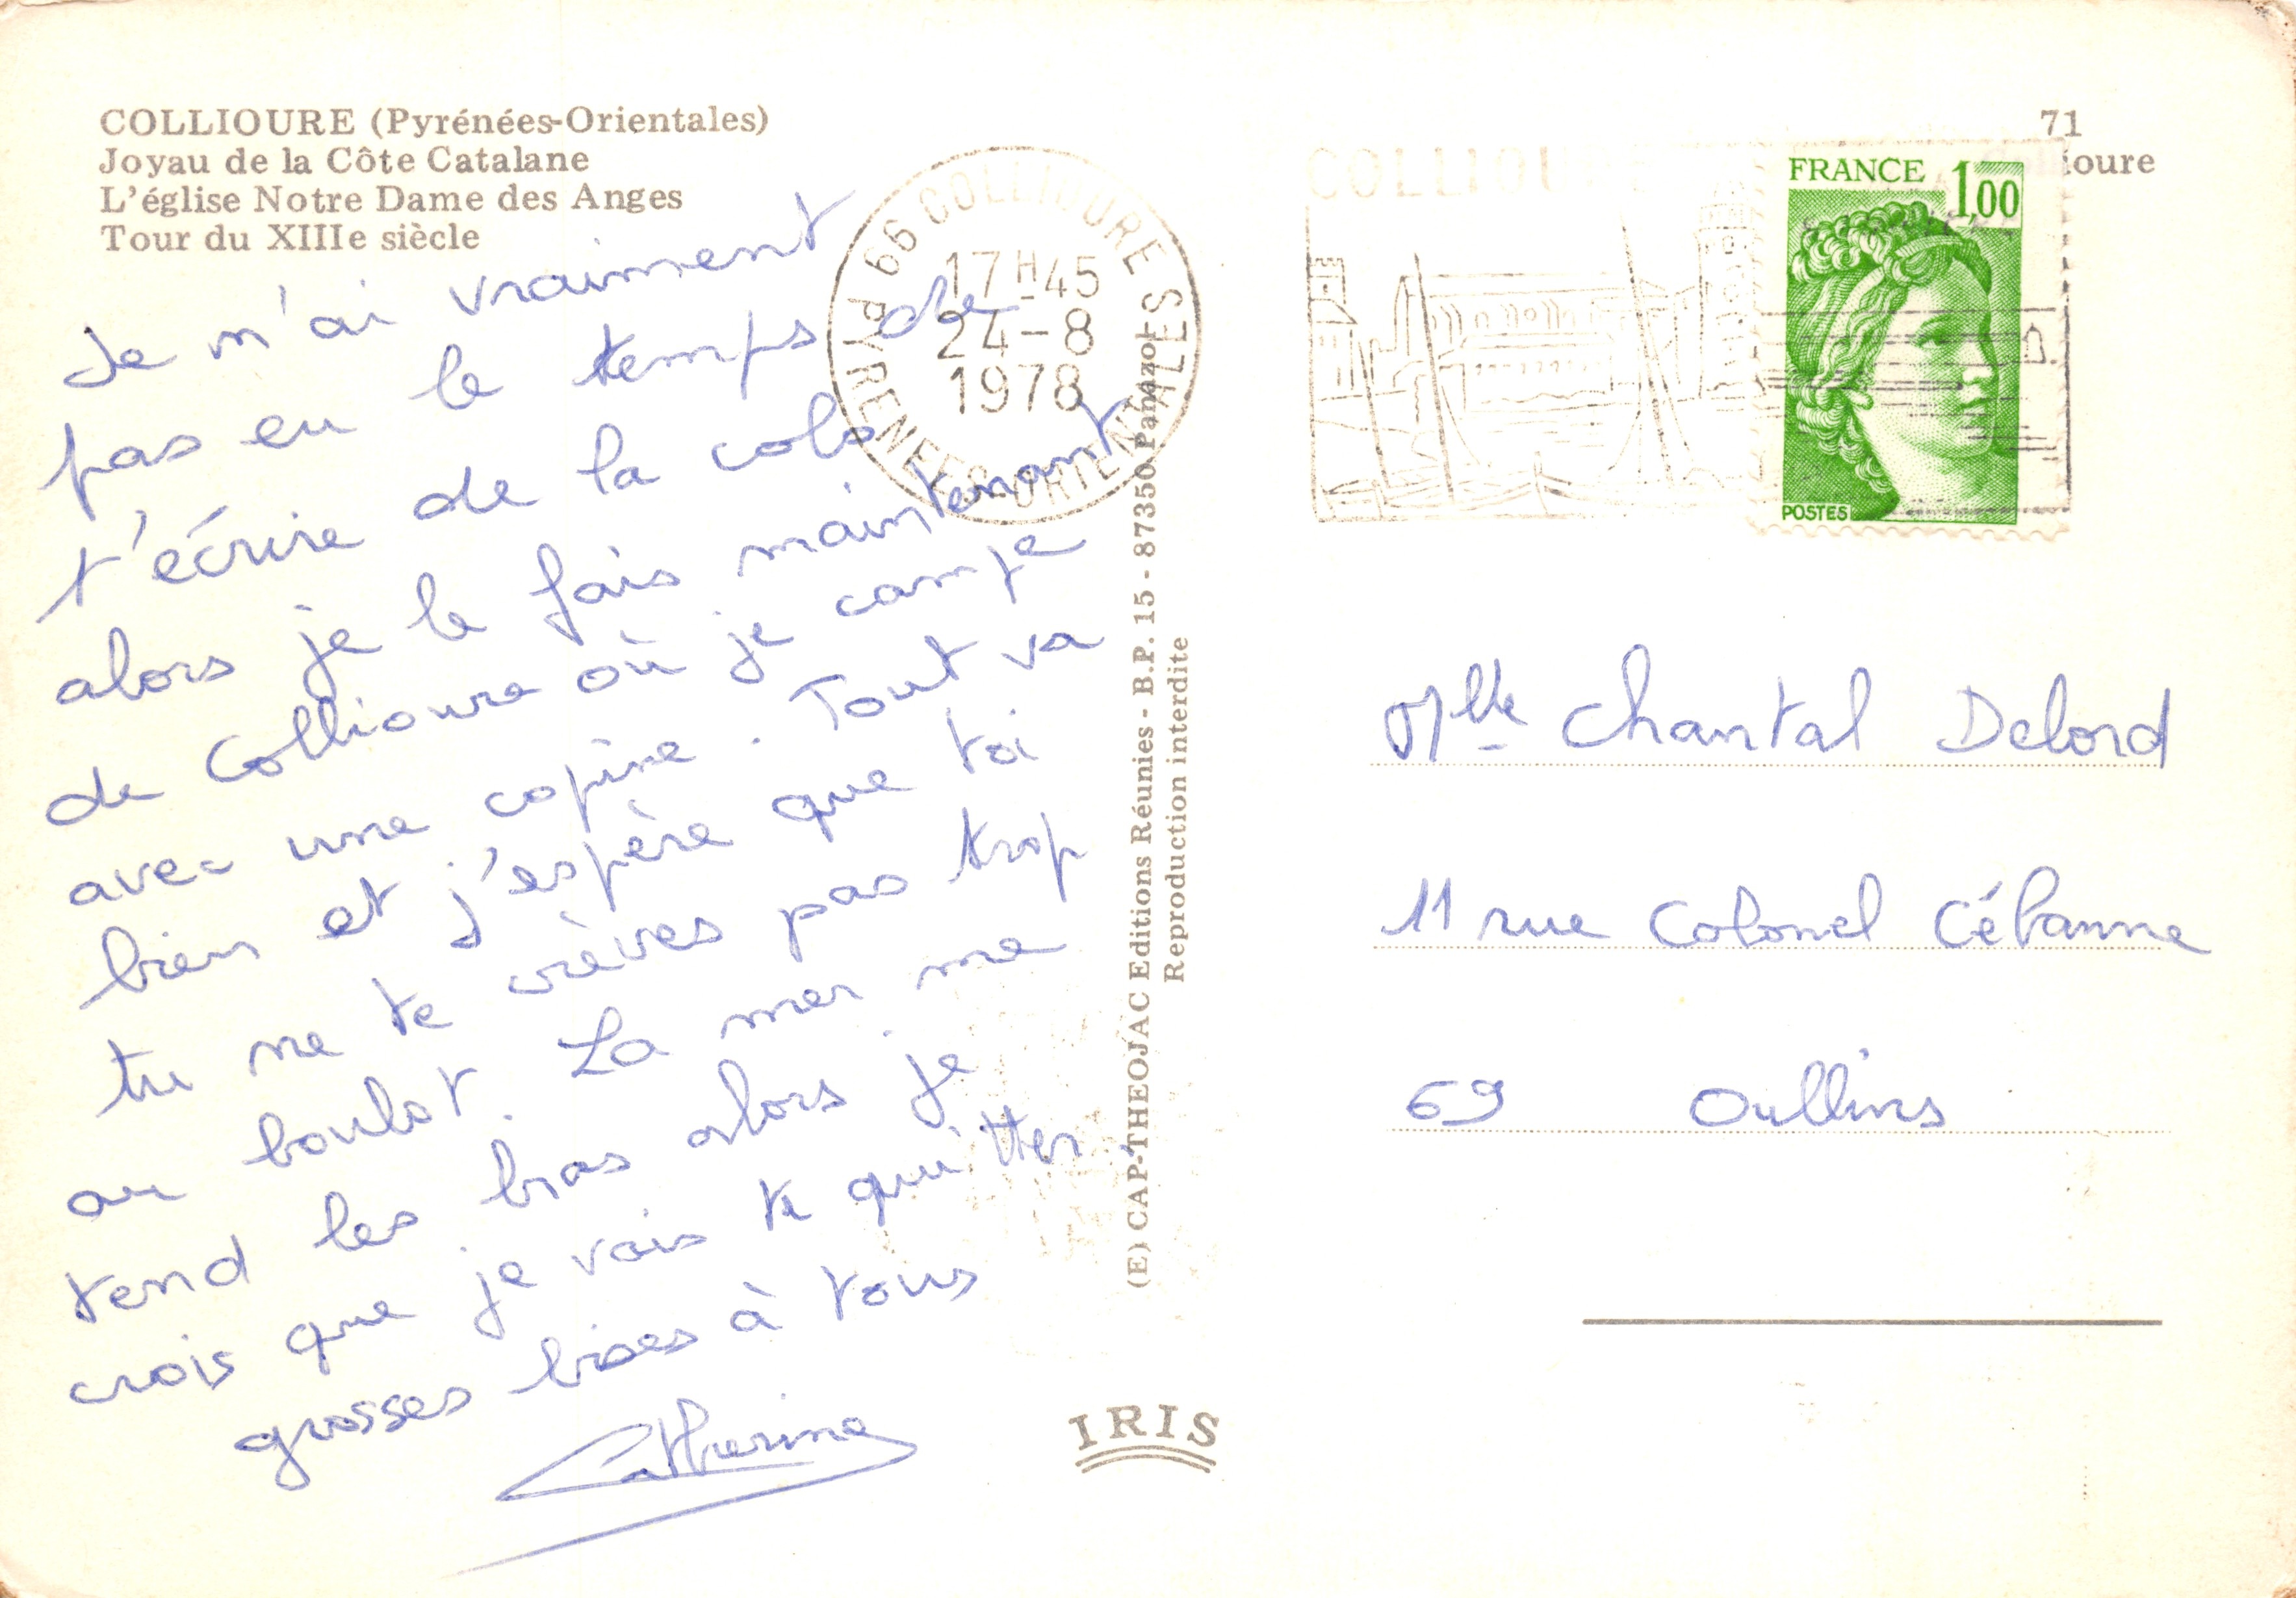 COLLIOURE (Pyrénées-Orientales)
Joyau de la Côte Catalane
L'église Notre Dame des Anges
Tour du XIIIe siècle
Je n'ai vraiment
pas eu le temps de
t'écrire de la colo
alors je le fais maintenant
de Collioure où je campe
avec une copine. Tout va
bien et j'espère que toi
tu ne te crèves pas trop
au boulot. La mer me
tend les bras alors je
crois que je vais te quitter.
grosses bises à tous
Catherine
66 COLLIOURE
17H45
24-8
1978
PYRENEES ORIENTALES
(E) CAP-THEOJAC Editions Réunies - B.P. 15 - 87350 Panazol
Reproduction interdite
IRIS
71
ioure
COLLIOURE
FRANCE 1,00
POSTES
Mlle Chantal Delord
11 rue Colonel Cébanne
69 Oullins